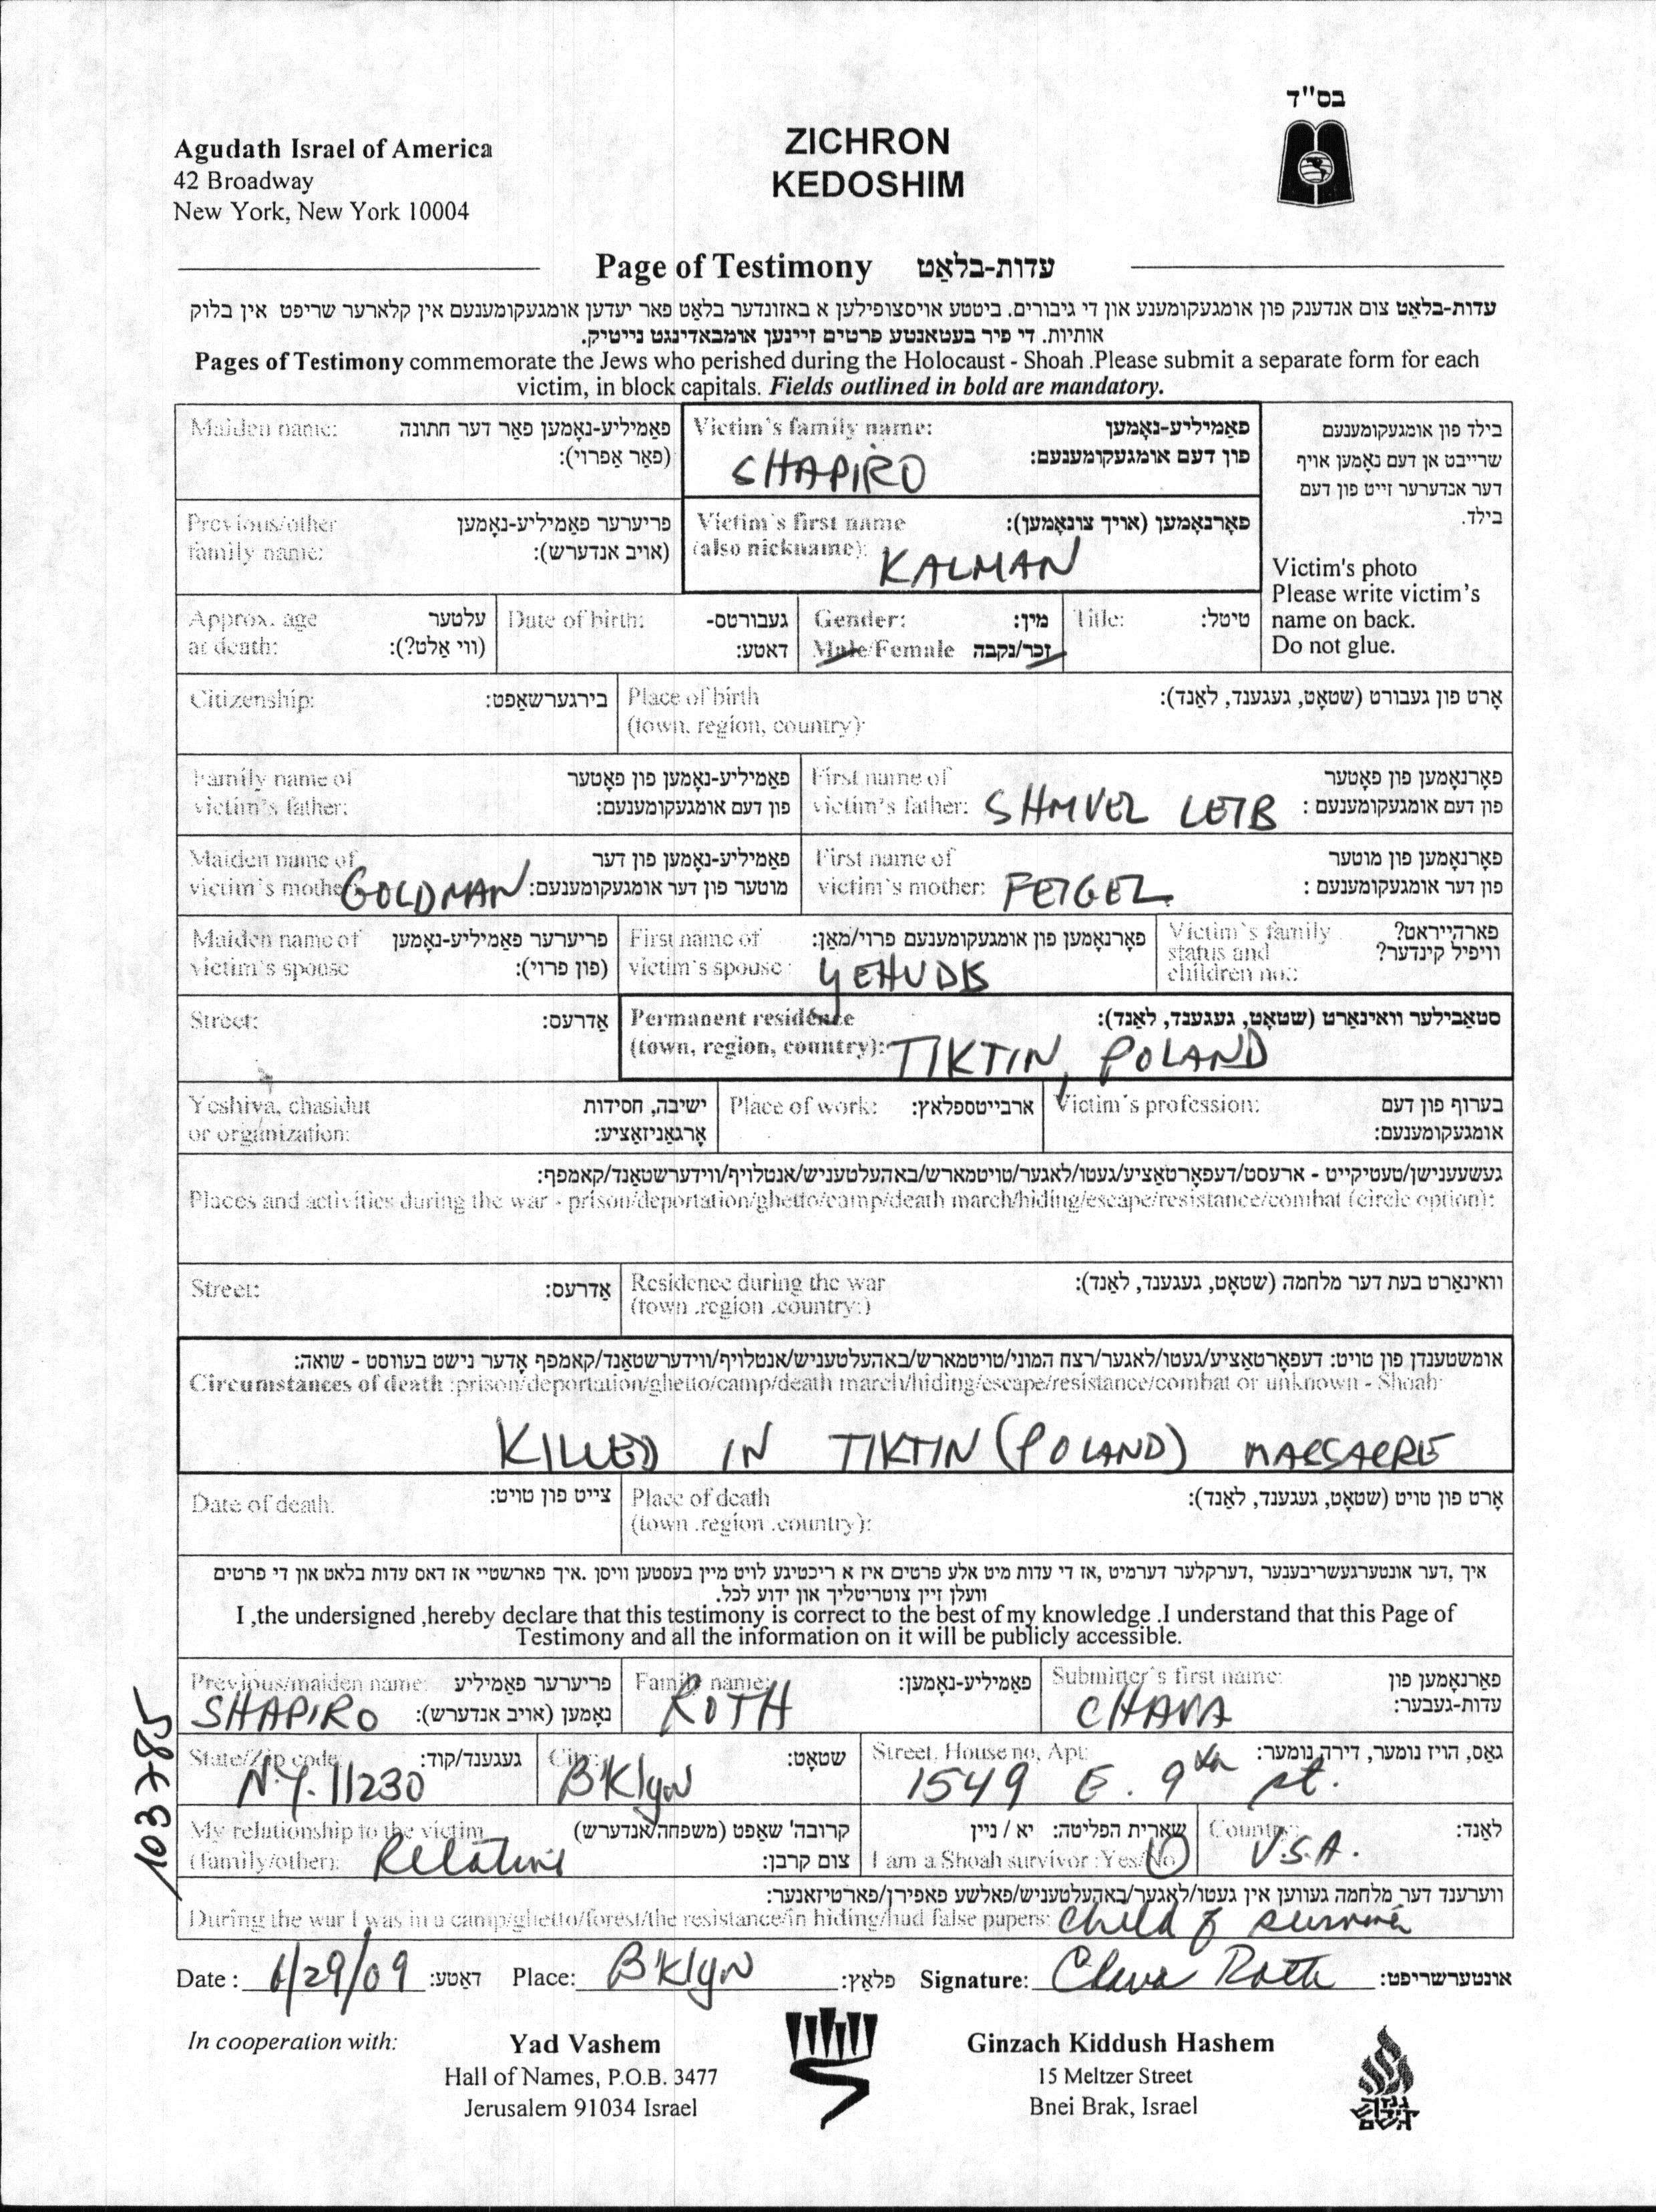 בס"ד
Agudath Israel of America
42 Broadway
New York, New York 10004
ZICHRON
KEDOSHIM
Page of Testimony עדות-בלאַט
עדות-בלאַט צום אנדענק פון אומגעקומענע און די גיבורים. ביטטע אויסצופילען א באזונדער בלאַט פאר יעדען אומגעקומענעם אין קלארער שריפט אין בלוק
אותיות. די פיר בעטאנטע פרטים זיינען אומבאדינגט נייטיק.
Pages of Testimony commemorate the Jews who perished during the Holocaust - Shoah .Please submit a separate form for each
victim, in block capitals. Fields outlined in bold are mandatory.
Maiden name: פאַמיליע-נאָמען פאַר דער חתונה
(פאַר אַפרוי):
Victim's family name: פאַמיליע-נאָמען
פון דעם אומגעקומענעם:
SHAPIRO
בילד פון אומגעקומענעם
שרייבט אן דעם נאָמען אויף
דער אנדערער זייט פון דעם
בילד.
Victim's photo
Please write victim's
name on back.
Do not glue.
Previous/other פריערער פאַמיליע-נאָמען
family name: (אויב אנדערש):
Victim's first name פאָרנאָמען (אויך צונאָמען):
(also nickname): KALMAN
Approx. age עלטער
at death: (ווי אַלט?):
Date of birth: געבורטס-
דאטע:
Gender: מין:
Male/Female זכר/נקבה
Title: טיטל:
Citizenship: בירגערשאַפט:
Place of birth אָרט פון געבורט (שטאָט, געגענד, לאַנד):
(town, region, country):
Family name of פאַמיליע-נאָמען פון פאָטער
victim's father: פון דעם אומגעקומענעם:
First name of פאָרנאָמען פון פאָטער
victim's father: SHMUEL LEIB פון דעם אומגעקומענעם :
Maiden name of פאַמיליע-נאָמען פון דער
victim's mother: GOLDMAN מוטער פון דער אומגעקומענעם:
First name of פאָרנאָמען פון מוטער
victim's mother: FEIGEL פון דער אומגעקומענעם :
Maiden name of פריערער פאַמיליע-נאָמען
victim's spouse (פון פרוי):
First name of פאָרנאָמען פון אומגעקומענעם פרוי/מאַן:
victim's spouse : YEHUDIS
Victim's family פארהייראט?
status and וויפיל קינדער?
children no.:
Street: אַדרעס:
Permanent residence סטאַבילער וואינאָרט (שטאָט, געגענד, לאַנד):
(town, region, country): TIKTIN, POLAND
Yeshiva, chasidut ישיבה, חסידות
or organization: אָרגאַניזאַציע:
Place of work: ארבייטספלאץ:
Victim's profession: בערוף פון דעם
אומגעקומענעם:
געשעענישן/טעטיקייט - ארעסט/דעפאָרטאַציע/געטו/לאגער/טויטמארש/באהעלטעניש/אנטלויף/ווידערשטאַנד/קאמפף:
Places and activities during the war - prison/deportation/ghetto/camp/death march/hiding/escape/resistance/combat (circle option):
Street: אַדרעס:
Residence during the war וואינאָרט בעת דער מלחמה (שטאָט, געגענד, לאַנד):
(town .region .country:)
אומשטענדן פון טויט: דעפאָרטאַציע/געטו/לאגער/רצח המוני/טויטמארש/באהעלטעניש/אנטלויף/ווידערשטאַנד/קאמפף אָדער נישט בעוווסט - שואה:
Circumstances of death :prison/deportation/ghetto/camp/death march/hiding/escape/resistance/combat or unknown - Shoah:
KILLED IN TIKTIN (POLAND) MASSACRE
Date of death: צייט פון טויט:
Place of death אָרט פון טויט (שטאָט, געגענד, לאַנד):
(town .region .country):
איך ,דער אונטערגעשריבענער ,דערקלער דערמיט ,אז די עדות מיט אלע פרטים איז א ריכטיגע לויט מיין בעסטען וויסן .איך פארשטיי אז דאס עדות בלאט און די פרטים
וועלן זיין צוטריטליך און ידוע לכל.
I ,the undersigned ,hereby declare that this testimony is correct to the best of my knowledge .I understand that this Page of
Testimony and all the information on it will be publicly accessible.
Previous/maiden name: פריערער פאַמיליע
SHAPIRO נאָמען (אויב אנדערש):
Family name: פאַמיליע-נאָמען:
ROTH
Submitter's first name: פאַרנאָמען פון
CHAVA עדות-געבער:
State/Zip code: געגענד/קוד:
N.Y. 11230
City: שטאָט:
B'Klyn
Street, House no, Apt: גאַס, הויז נומער, דירה נומער:
1549 E. 9th st.
My relationship to the victim קרובה' שאַפט (משפחה/אנדערש)
(family/other): Relative צום קרבן:
שארית הפליטה: יא / ניין
I am a Shoah survivor :Yes/No
Country: לאַנד:
U.S.A.
ווערענד דער מלחמה געווען אין געטו/לאַגער/באַהעלטעניש/פאלשע פאפירן/פארטיזאנער:
During the war I was in a camp/ghetto/forest/the resistance/in hiding/had false papers: child of survivor
Date : 6/29/09 דאטע: Place: B'Klyn פלאַץ: Signature: Chava Roth אונטערשריפט:
103785
In cooperation with:
Yad Vashem
Hall of Names, P.O.B. 3477
Jerusalem 91034 Israel
Ginzach Kiddush Hashem
15 Meltzer Street
Bnei Brak, Israel
גנזך
קידוש
השם